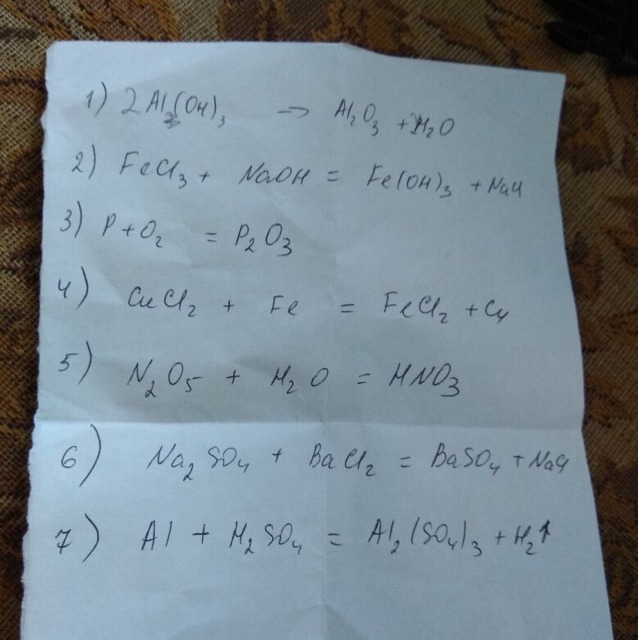 1) 2Al(OH)₃ → Al₂O₃ + H₂O
2) FeCl₃ + NaOH = Fe(OH)₃ + NaCl
3) P + O₂ = P₂O₃
4) CuCl₂ + Fe = FeCl₂ + Cu
5) N₂O₅ + H₂O = HNO₃
6) Na₂SO₄ + BaCl₂ = BaSO₄ + NaCl
7) Al + H₂SO₄ = Al₂(SO₄)₃ + H₂↑